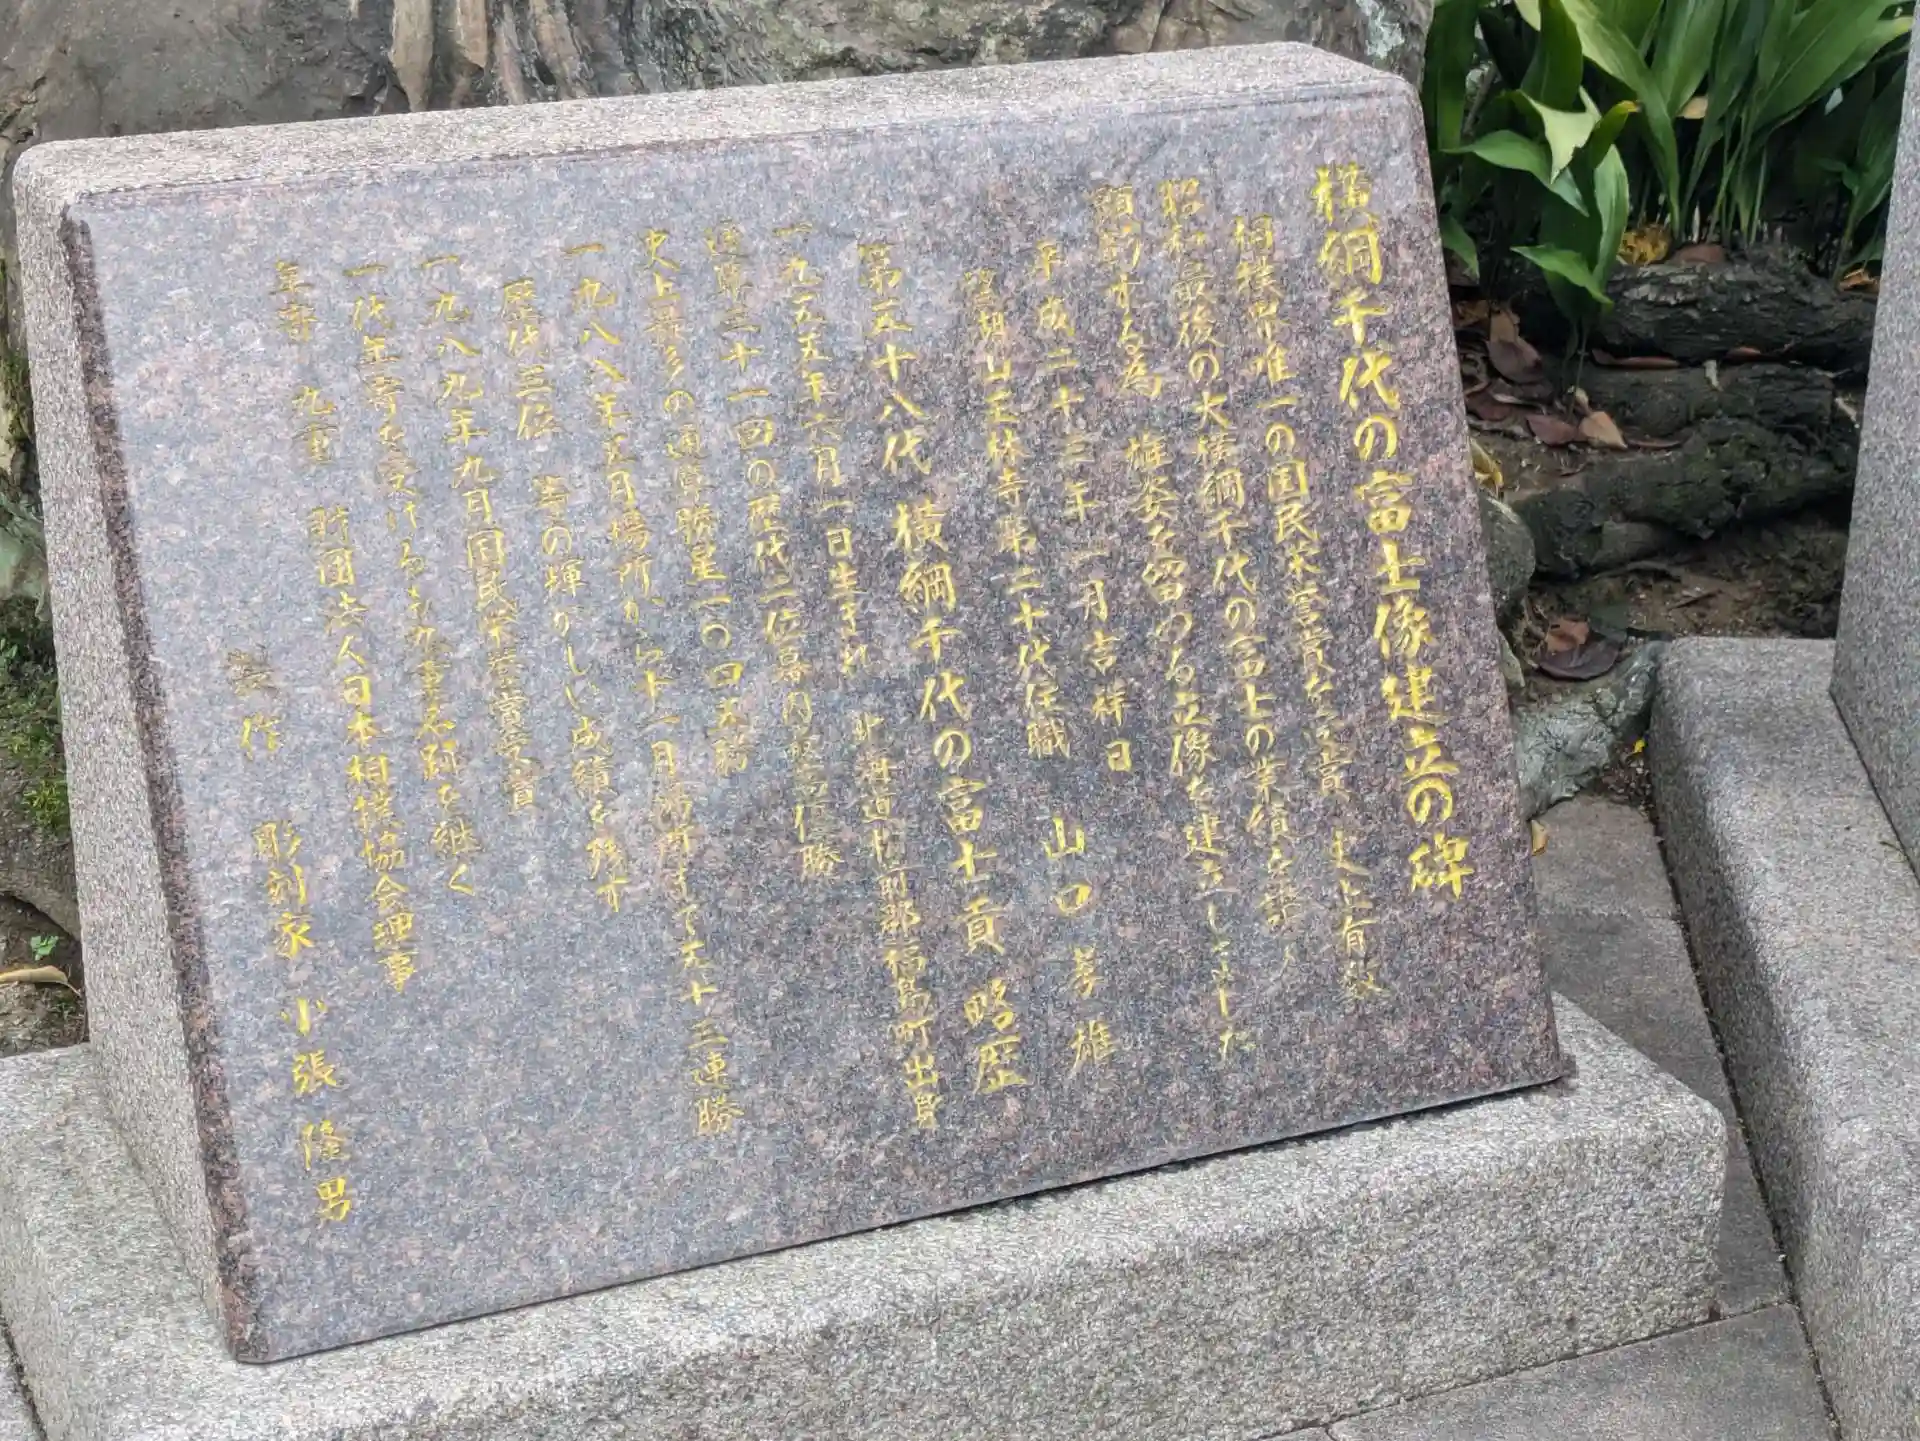 横綱千代の富士像建立の碑
相撲界唯一の国民栄誉賞を受賞 史上有数
昭和最後の大横綱千代の富士の業績を讃え
顕彰する為 雄姿を留める立像を建立しました
平成二十三年 一月吉祥日
望湖山玉林寺第二十代住職 山口 雄
第五十八代 横綱千代の富士貢 略歴
一九五五年六月一日生まれ 北海道松前郡福島町出身
通算三十一回の歴代二位幕内最高優勝
史上最多の通算勝星一〇四五勝
一九八八年五月場所から十一月場所まで五十三連勝
歴代三位 等の輝かしい成績を残す
一九八九年九月国民栄誉賞受賞
一代年寄を受けるも九重名跡を継ぐ
年寄 九重 財団法人日本相撲協会理事
製作 彫刻家 小張 隆男